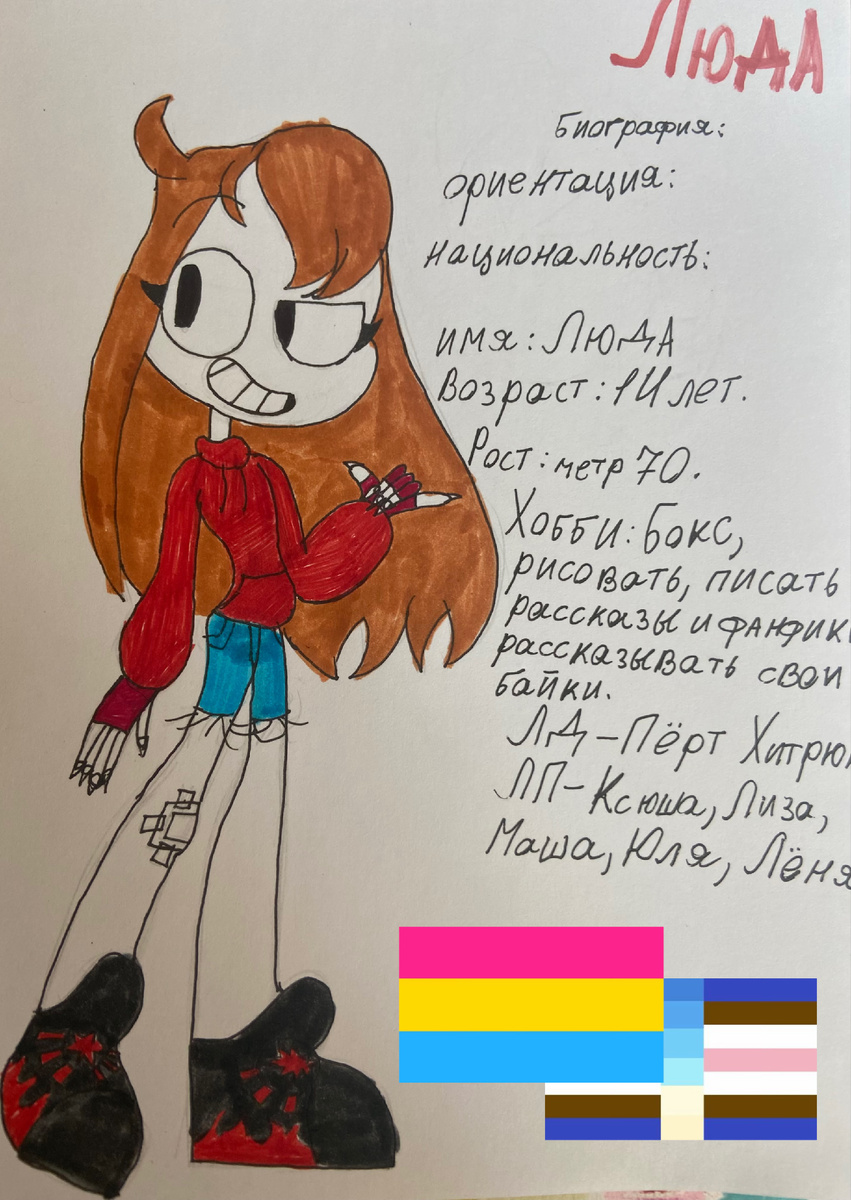 ЛЮДА
биография:
ориентация:
национальность:
имя: ЛЮДА
Возраст: 14 лет.
Рост: метр 70.
Хобби: Бокс,
рисовать, писать
рассказы и фанфик
рассказывать свои
байки.
ЛД – Пёрт Хитрю
ЛП – Ксюша, Лиза,
Маша, Юля, Лёня